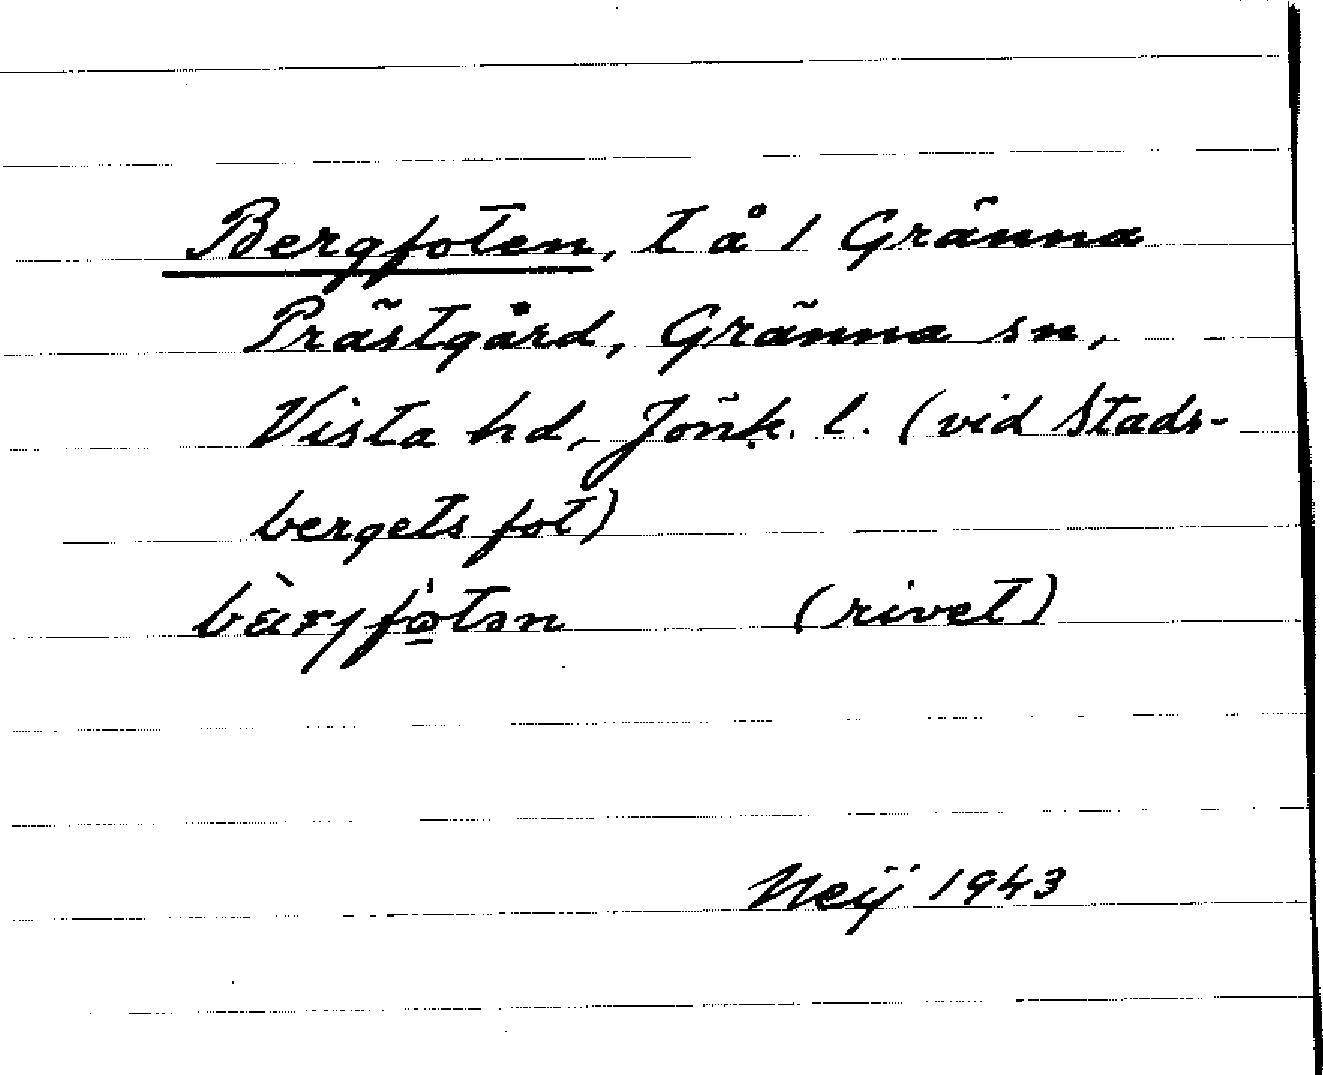 Bergfoten, t å 1 Gränna
Prästgård, Gränna sn,
Vista hd, Jönk. l. (vid Stads-
bergets fot)
bàrjfo̲tən (rivet)
Neij 1943